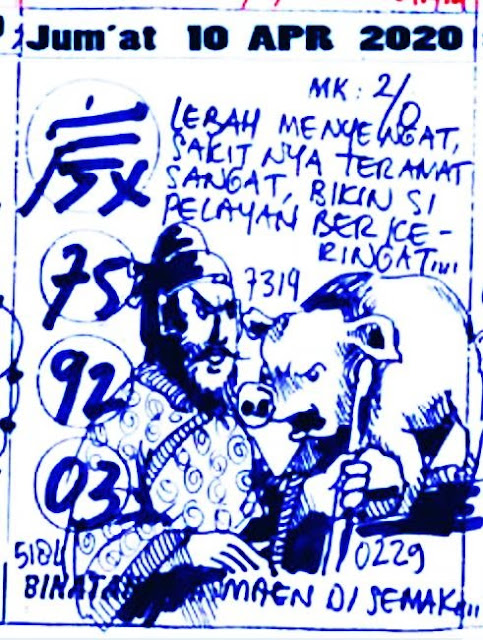 Jum'at 10 APR 2020
MK: 2/0
LEBAH MENYENGAT,
SAKITNYA TERAMAT
SANGAT, BIKIN SI
PELAYAN BERKE-
RINGAT....
75
7319
92
03
5184
0229
MAEN DI SEMAK....